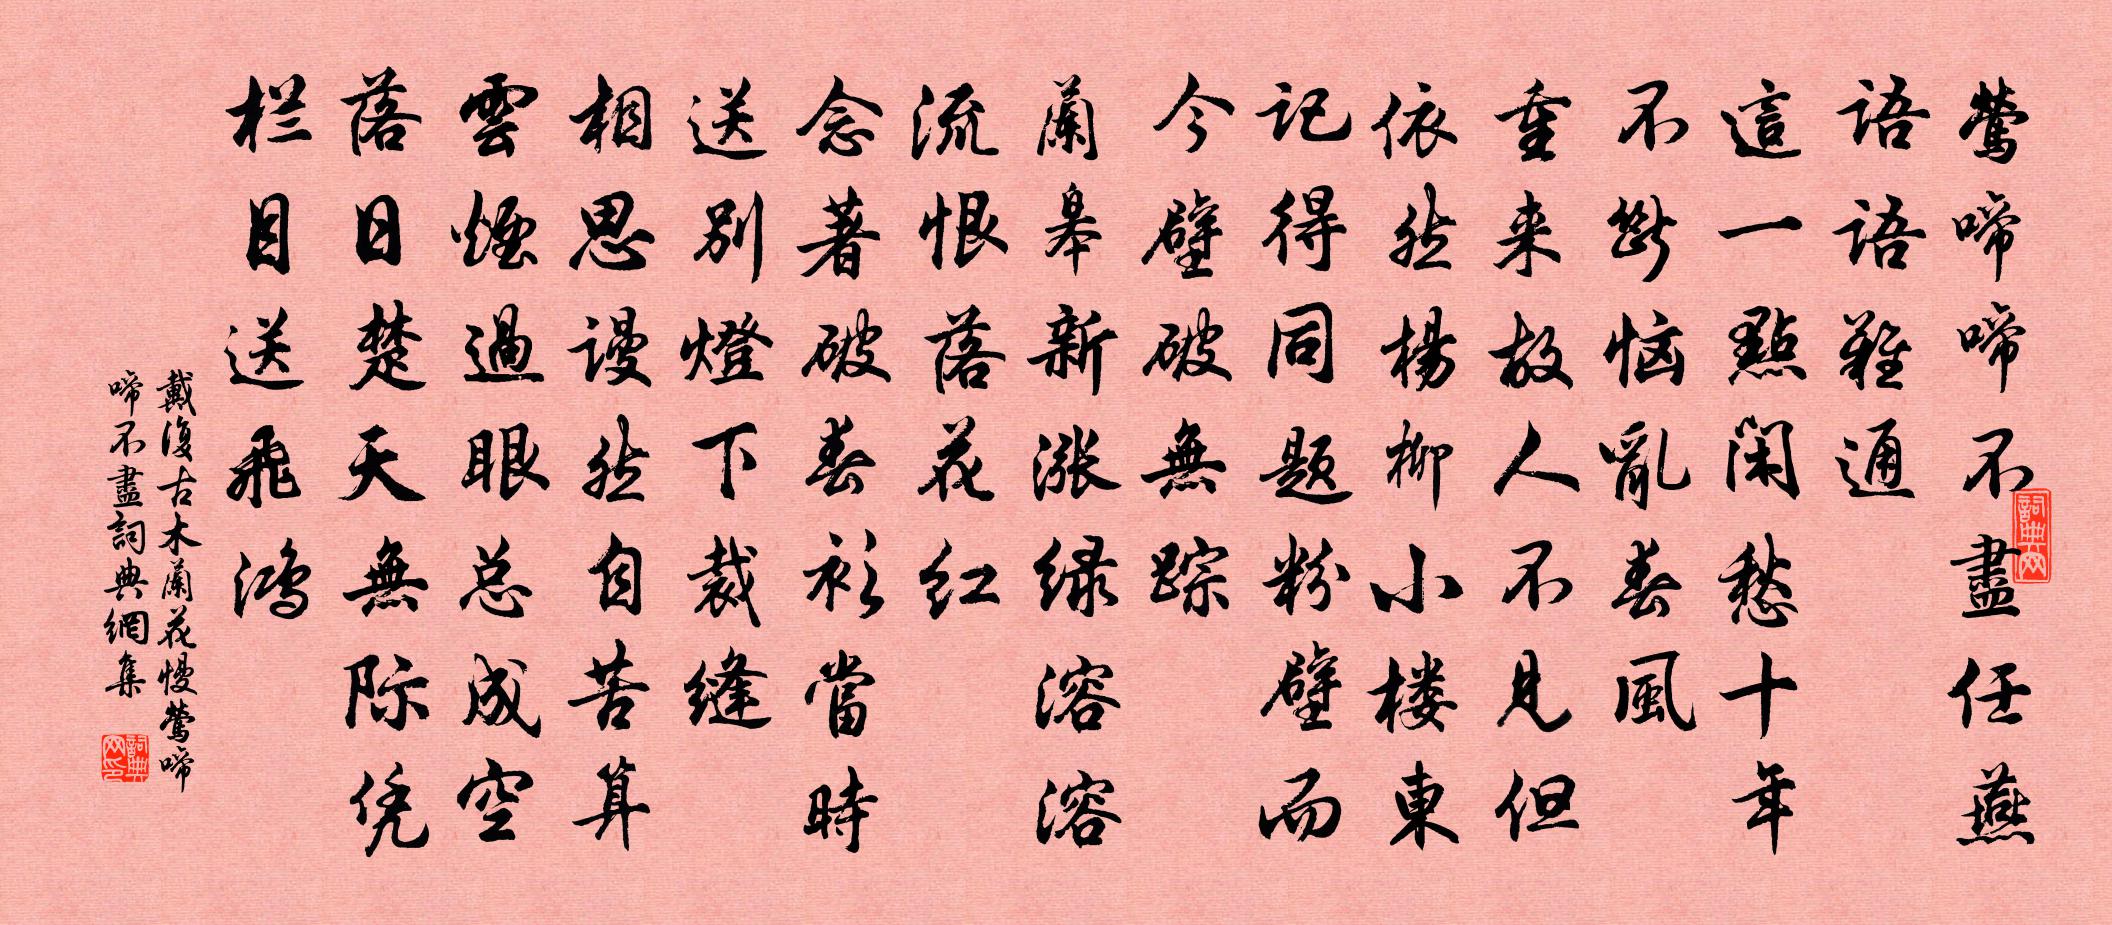 鶯啼啼不盡任燕
語語難通
這一點閑愁十年
不斷惱亂春風
重来故人不見但
依然楊柳小楼東
記得同題粉壁而
今壁破無踪
蘭皋新漲绿溶溶
流恨落花红
念著破春衫當時
送别燈下裁縫
相思謾然自苦算
雲煙過眼总成空
落日楚天無际凭
栏目送飛鸿
戴復古木蘭花慢鶯啼
啼不盡詞典網集
詞典网
詞典网印